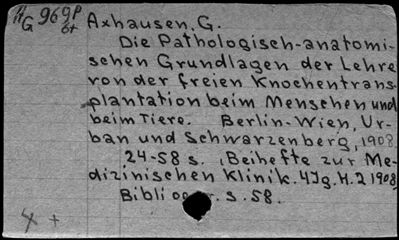 HG 969P Axhausen, G.
6t
Die Pathologisch-anatomi-
schen Grundlagen der Lehre
von der freien Knochentrans-
plantation beim Menschen und
beim Tiere. Berlin-Wien, Ur-
ban und Schwarzenberg, 1908.
24-58 s. (Beihefte zur Me-
dizinischen Klinik. 4Jg. H. 2 1908)
s. 58.